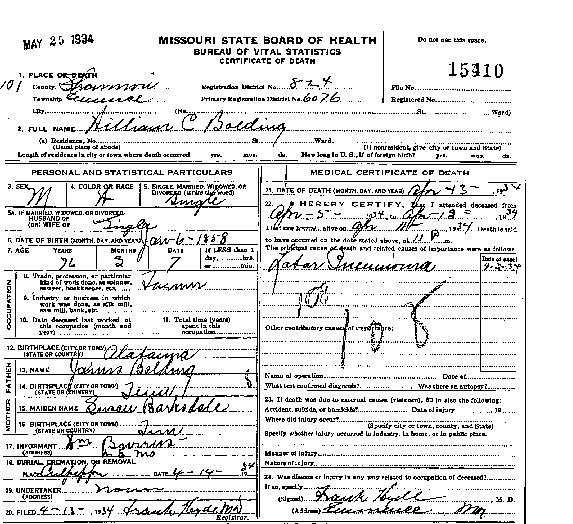 MAY 25 1934
MISSOURI STATE BOARD OF HEALTH
BUREAU OF VITAL STATISTICS
CERTIFICATE OF DEATH
Do not use this space.
15910
1. PLACE OF DEATH
County Shannon
Registration District No. 824
File No.
Township Eminence
Primary Registration District No. 6076
Registered No.
City (No. St. Ward)
2. FULL NAME William C Bolding
(a) Residence, No. St. Ward.
(Usual place of abode) (If nonresident, give city or town and State)
Length of residence in city or town where death occurred yrs. mos. ds. How long in U.S., if of foreign birth? yrs. mos. ds.
PERSONAL AND STATISTICAL PARTICULARS
3. SEX M
4. COLOR OR RACE
5. SINGLE, MARRIED, WIDOWED, OR DIVORCED (write the word) Single
5A. IF MARRIED, WIDOWED, OR DIVORCED
HUSBAND OF
(OR) WIFE OF Single
6. DATE OF BIRTH (MONTH, DAY, AND YEAR) Jan-6-1858
7. AGE YEARS MONTHS DAYS If LESS than 1 day, hrs. or min.
76 3 7
OCCUPATION
8. Trade, profession, or particular kind of work done, as spinner, sawyer, bookkeeper, etc. Farmer
9. Industry or business in which work was done, as silk mill, saw mill, bank, etc.
10. Date deceased last worked at this occupation (month and year)
11. Total time (years) spent in this occupation
12. BIRTHPLACE (CITY OR TOWN)
(STATE OR COUNTRY) Alabama
FATHER
13. NAME James Bolding
14. BIRTHPLACE (CITY OR TOWN)
(STATE OR COUNTRY) Tenn
MOTHER
15. MAIDEN NAME Barksdale
16. BIRTHPLACE (CITY OR TOWN)
(STATE OR COUNTRY) Tenn
17. INFORMANT
(ADDRESS) Mo
18. BURIAL, CREMATION, OR REMOVAL
PLACE DATE 4-14- 1934
19. UNDERTAKER
(ADDRESS)
20. FILED 4-13- 1934 Frank Hyde MD
Registrar.
MEDICAL CERTIFICATE OF DEATH
21. DATE OF DEATH (MONTH, DAY, AND YEAR) Apr 13- 1934
22. I HEREBY CERTIFY, That I attended deceased from
Apr-5- 1934, to Apr-12- 1934
I last saw alive on Apr 1934 Death is said
to have occurred on the date stated above, at 11 P m.
The principal cause of death and related causes of importance were as follows:
Date of onset
Lobar Pneumonia
108
108
Other contributory causes of importance:
Name of operation Date of
What test confirmed diagnosis? Was there an autopsy?
23. If death was due to external causes (violence), fill in also the following:
Accident, suicide, or homicide? Date of injury 19
Where did injury occur?
(Specify city or town, county, and State)
Specify whether injury occurred in industry, in home, or in public place.
Manner of injury
Nature of injury
24. Was disease or injury in any way related to occupation of deceased?
If so, specify
(Signed) Frank Hyde M. D.
(Address) Eminence Mo